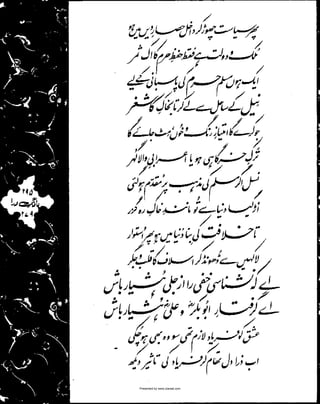 پھر سیاست چھوڑ کر داخل حصارِ دیں میں ہو
ملک و دولت ہے فقط حفظِ حرم کا اک ثمر
ایک ہوں مسلم حرم کی پاسبانی کے لیے
نیل کے ساحل سے لے کر تا بخاکِ کاشغر
جو کرے گا امتیازِ رنگ و خوں مٹ جائے گا
ترکِ خرگاہی ہو یا اعرابیِ والا گہر
نسل اگر مسلم کی مذہب پر مقدم ہو گئی
اڑ گیا دنیا سے تو مانندِ خاکِ رہ گزر
تا خلافت کی بنا دنیا میں ہو پھر استوار
لا کہیں سے ڈھونڈ کر اسلاف کا قلب و جگر
اے کہ نشناسی خفی را از جلی ہشیار باش
اے گرفتارِ ابوبکرؓ و علیؓ ہشیار باش
عشق کو فریاد لازم تھی سو وہ بھی ہو چکی
اب ذرا دل تھام کر فریاد کی تاثیر دیکھ
بانگِ درا
Presented by www.ziaraat.com